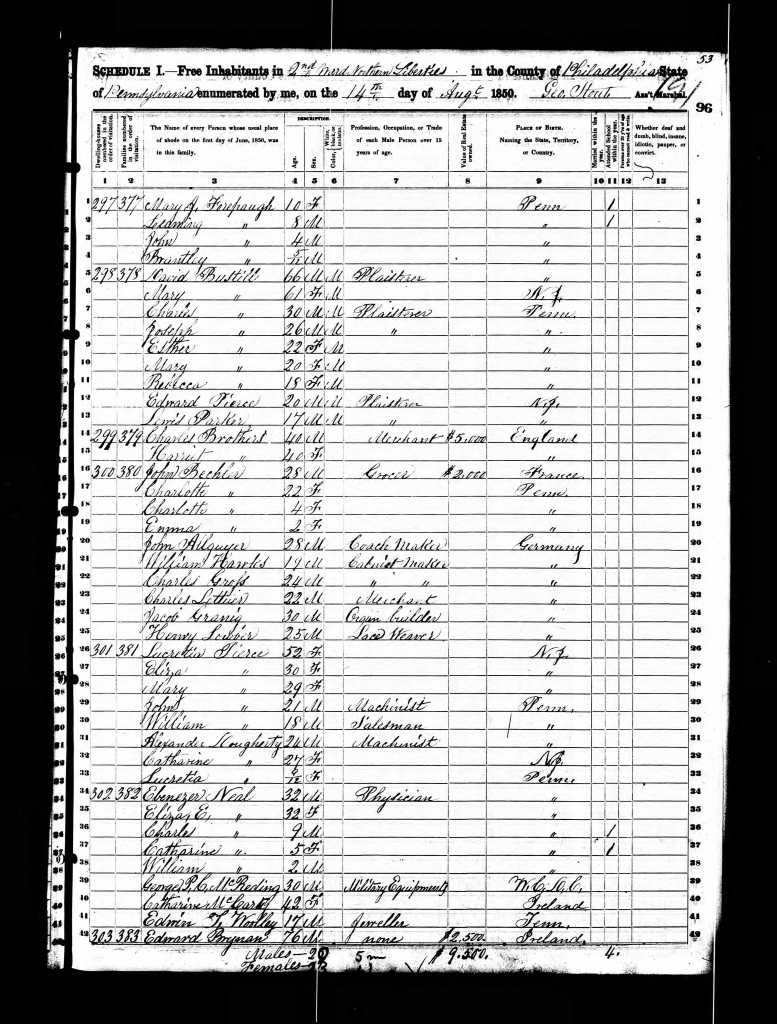 53
SCHEDULE I.—Free Inhabitants in 2nd Ward Northern Liberties in the County of Philadelphia State
of Pennsylvania enumerated by me, on the 14th day of Augt 1850. Geo. Stout Ass't Marshal.
96
Dwelling-houses numbered in the order of visitation. Families numbered in the order of visitation. The Name of every Person whose usual place of abode on the first day of June, 1850, was in this family. DESCRIPTION. Age. Sex. Color, White, black, or mulatto. Profession, Occupation, or Trade of each Male Person over 15 years of age. Value of Real Estate owned. PLACE OF BIRTH. Naming the State, Territory, or Country. Married within the year. Attended School within the year. Persons over 20 y'rs of age who cannot read & write. Whether deaf and dumb, blind, insane, idiotic, pauper, or convict.
1 2 3 4 5 6 7 8 9 10 11 12 13
1 297 377 Mary J. Forepaugh 10 F Penn 1 1
2 " 8 M " 1 2
3 John " 4 M " 3
4 Brantley " /12 M " 4
5 298 378 David Bustill 66 M M Plaisterer " 5
6 Mary " 61 F M N.J. 6
7 Charles " 30 M M Plaisterer Penn. 7
8 Joseph " 26 M M " " 8
9 Esther " 22 F M " 9
10 Mary " 20 F M " 10
11 Rebecca " 18 F M " 11
12 Edward Pierce 20 M M Plaisterer N.J. 12
13 Lewis Parker 17 M M " " 13
14 299 379 Charles Brothers 40 M Merchant $5,000 England 14
15 Harriet " 40 F " 15
16 300 380 John Bechler 28 M Grocer $2,000 France 16
17 Charlotte " 22 F Penn. 17
18 Charlotte " 4 F " 18
19 Emma " 2 F " 19
20 John Allgueyer 28 M Coach Maker Germany 20
21 William Hawks 19 M Cabinet Maker " 21
22 Charles Gross 24 M " " " 22
23 Charles 22 M Merchant " 23
24 Jacob 30 M Organ builder " 24
25 Henry 25 M Lace Weaver " 25
26 301 381 Lucretia Pierce 52 F N.J. 26
27 Eliza " 30 F " 27
28 Mary " 29 F " 28
29 John " 21 M Machinist Penn. 29
30 William " 18 M Salesman " 30
31 Alexander Dougherty 24 M Machinist " 31
32 Catharine " 27 F N.J. 32
33 Lucretia " /12 F Penn. 33
34 302 382 Ebenezer Neal 32 M Physician " 34
35 Eliza E. " 32 F " 35
36 Charles " 9 M " 1 36
37 Catharine " 5 F " 1 37
38 William " 2 M " 38
39 George P. C. McReding 30 M Military Equipments W.C.D.C. 39
40 Catharine McCarty 42 F Ireland 40
41 Edwin T. Woolley 17 M Jeweller Penn. 41
42 303 383 Edward Brynan 76 M none $2,500. Ireland. 42
Males— 5 m $9,500. 4.
Females—